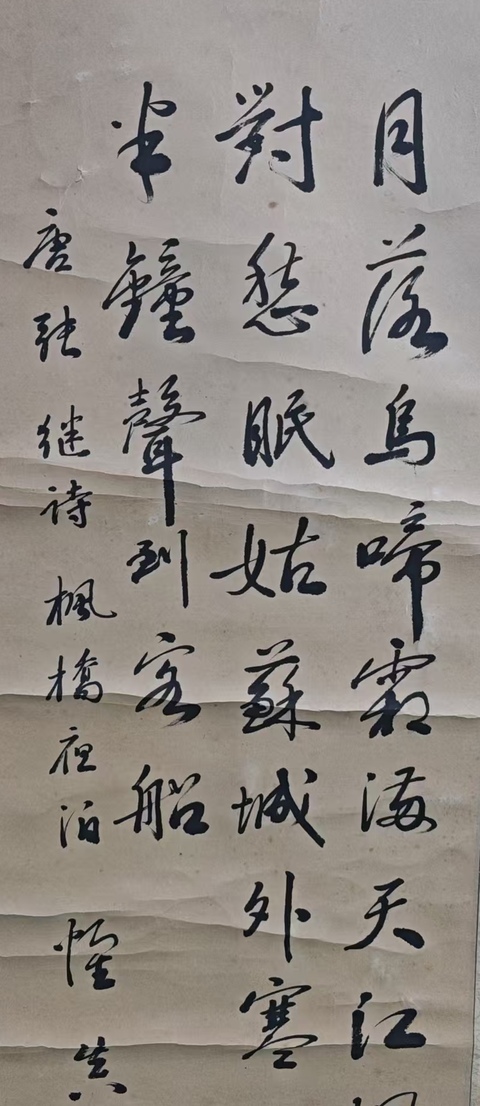 月落烏啼霜滿天江
對愁眠姑蘇城外寒
半鐘聲到客船
唐张继诗楓橋夜泊